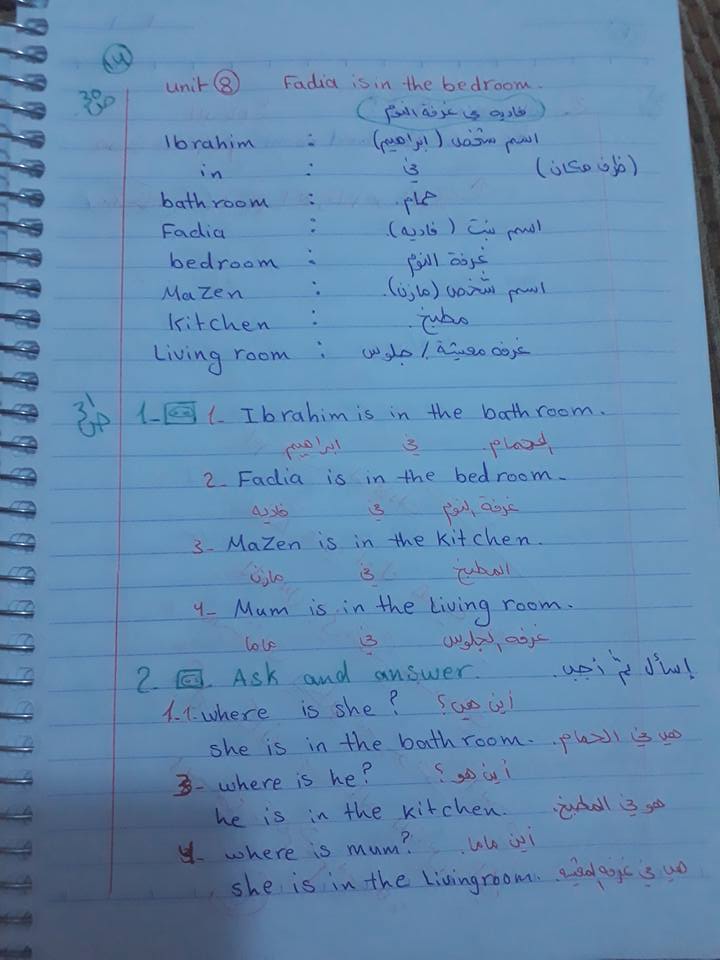 ١٤
ص٣٠ unit 8 Fadia is in the bedroom.
(فاديه في غرفة النوم)
Ibrahim : اسم شخص (ابراهيم)
in : في (ظرف مكان)
bathroom : حمام.
Fadia : اسم بنت (فاديه).
bedroom : غرفة النوم
Mazen : اسم شخص (مازن).
Kitchen : مطبخ.
Living room : غرفه معيشة / جلوس
ص٣١ 1- 1- Ibrahim is in the bathroom.
ابراهيم في الحمام.
2- Fadia is in the bedroom.
فاديه في غرفة النوم
3- Mazen is in the kitchen.
مازن في المطبخ
4- Mum is in the Living room.
ماما في غرفه الجلوس
2. Ask and answer. إسأل ثم أجب.
1.1. where is she? أين هي؟
she is in the bathroom. هي في الحمام.
3- where is he? أين هو؟
he is in the kitchen. هو في المطبخ.
4- where is mum? أين ماما.
she is in the Livingroom. هي في غرفه المعيشه